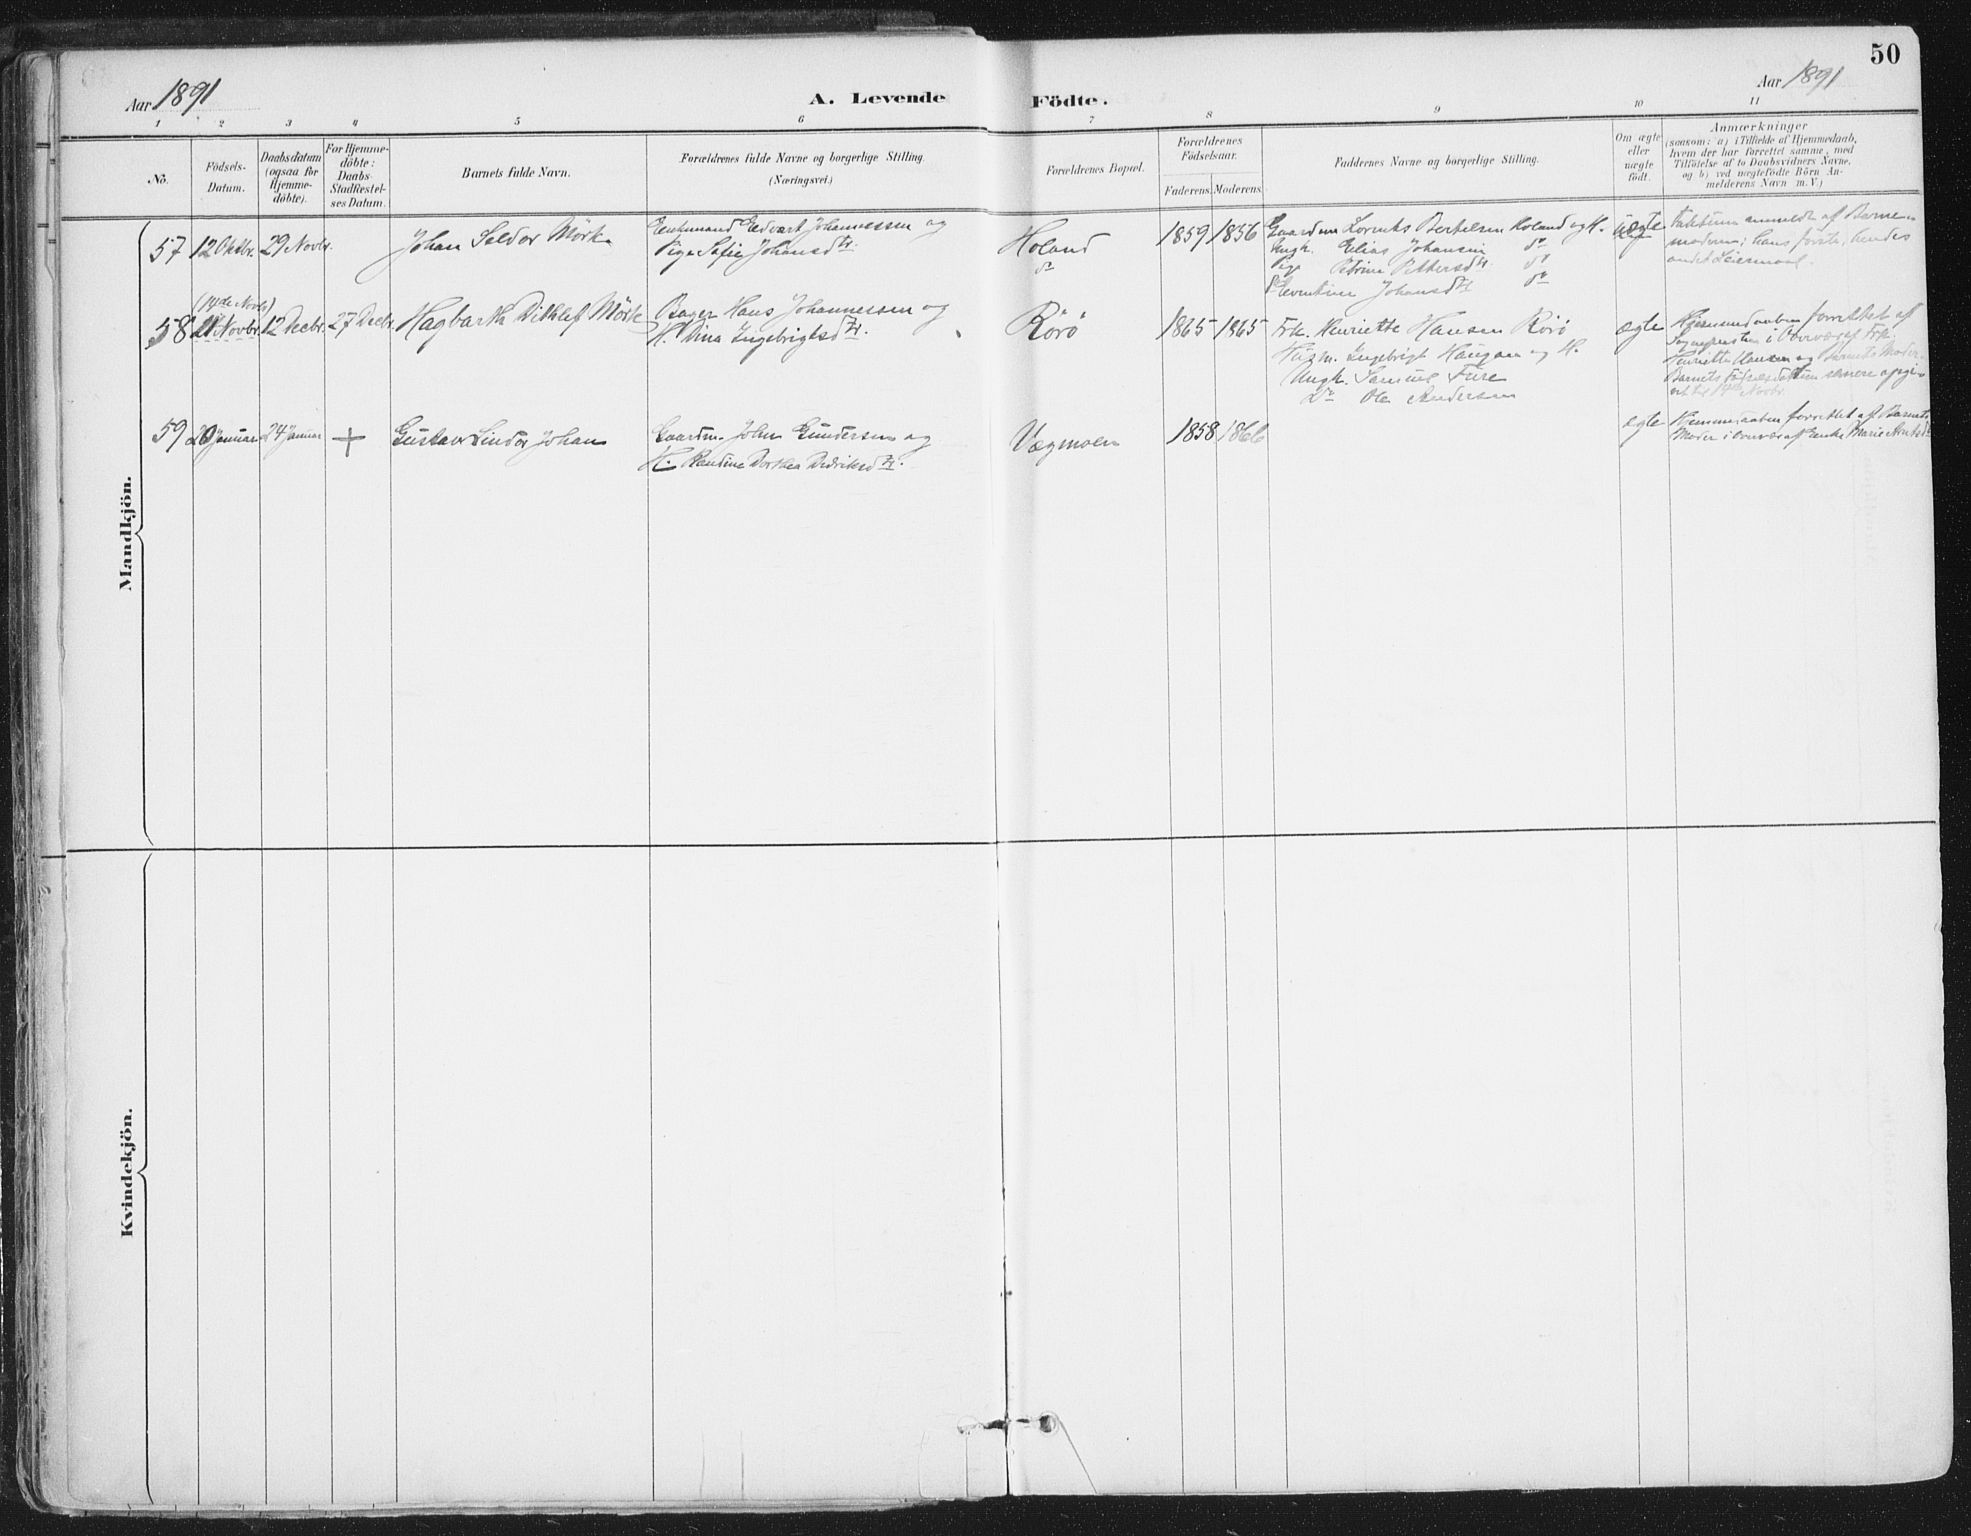 50
Aar 1891
A. Levende Födte.
Aar 1891
1 2 3 4 5 6 7 8 9 10 11
No.
Födsels-Datum.
Daabsdatum (ogsaa for Hjemme-döbte).
For Hjemme-döbte: Daabs-Stadfæstel-ses Datum.
Barnets fulde Navn.
Forældrenes fulde Navne og borgerlige Stilling.
(Næringsvei.)
Forældrenes Bopæl.
Forældrenes Födselsaar.
Faderens. Moderens.
Faddernes Navne og borgerlige Stilling.
Om ægte eller uægte födt.
Anmærkninger
(saasom: a) i Tilfælde af Hjemmedaab,
hvem der har forrettet samme, med
Tilföielse af to Daabsvidners Navne,
og b) ved uægtefödte Börn An-
melderens Navn m. V.)
Mandkjön.
57 12 Oktbr. 29 Novbr. Johan Seldor Mörk
Enkemand Edvart Johannessen og
Pige Sofie Johansdtr.
Holand
do
1859 1856
Gaardm Lornts Bertelsen Holand og H.
Ungk. Elias Johansen do
Pige Petrine Pettersdtr. do
do Leventine Johansdtr do
uægte
Faktum anmeldt af Barne-
moderen; hans förste, hendes
andet Leiermaal.
(14de Novbr)
58 21 Novbr. 12 Decbr. 27 Decbr. Hagbarth Ditlef Mörk
Bager Hans Johannessen og
H. Dina Ingebrigtsdtr.
Rörö
1865 1865
Frk. Henriette Hansen Rörö
Husm. Ingebrigt Haugan og H.
Ungk. Samuel Fure
Do Ole Andersen
ægte
Hjemmedaaben forrettet af
Sognepresten i Overvær af Frk.
Henriette Hansen og Barnets Moder.
Barnets Födselsdatum senere opgi-
vet til 14de Novbr.
59 20 Januar 24 Januar + Gustav Sindor Johan
Gaardm. John Gundersen og
H. Randine Dorthea Didriksdtr.
Vægmoen
1858 1866
ægte
Hjemmedaaben forrettet af Barnets
Moder i Overvær af Enke Marie Arntsdtr
Kvindekjön.